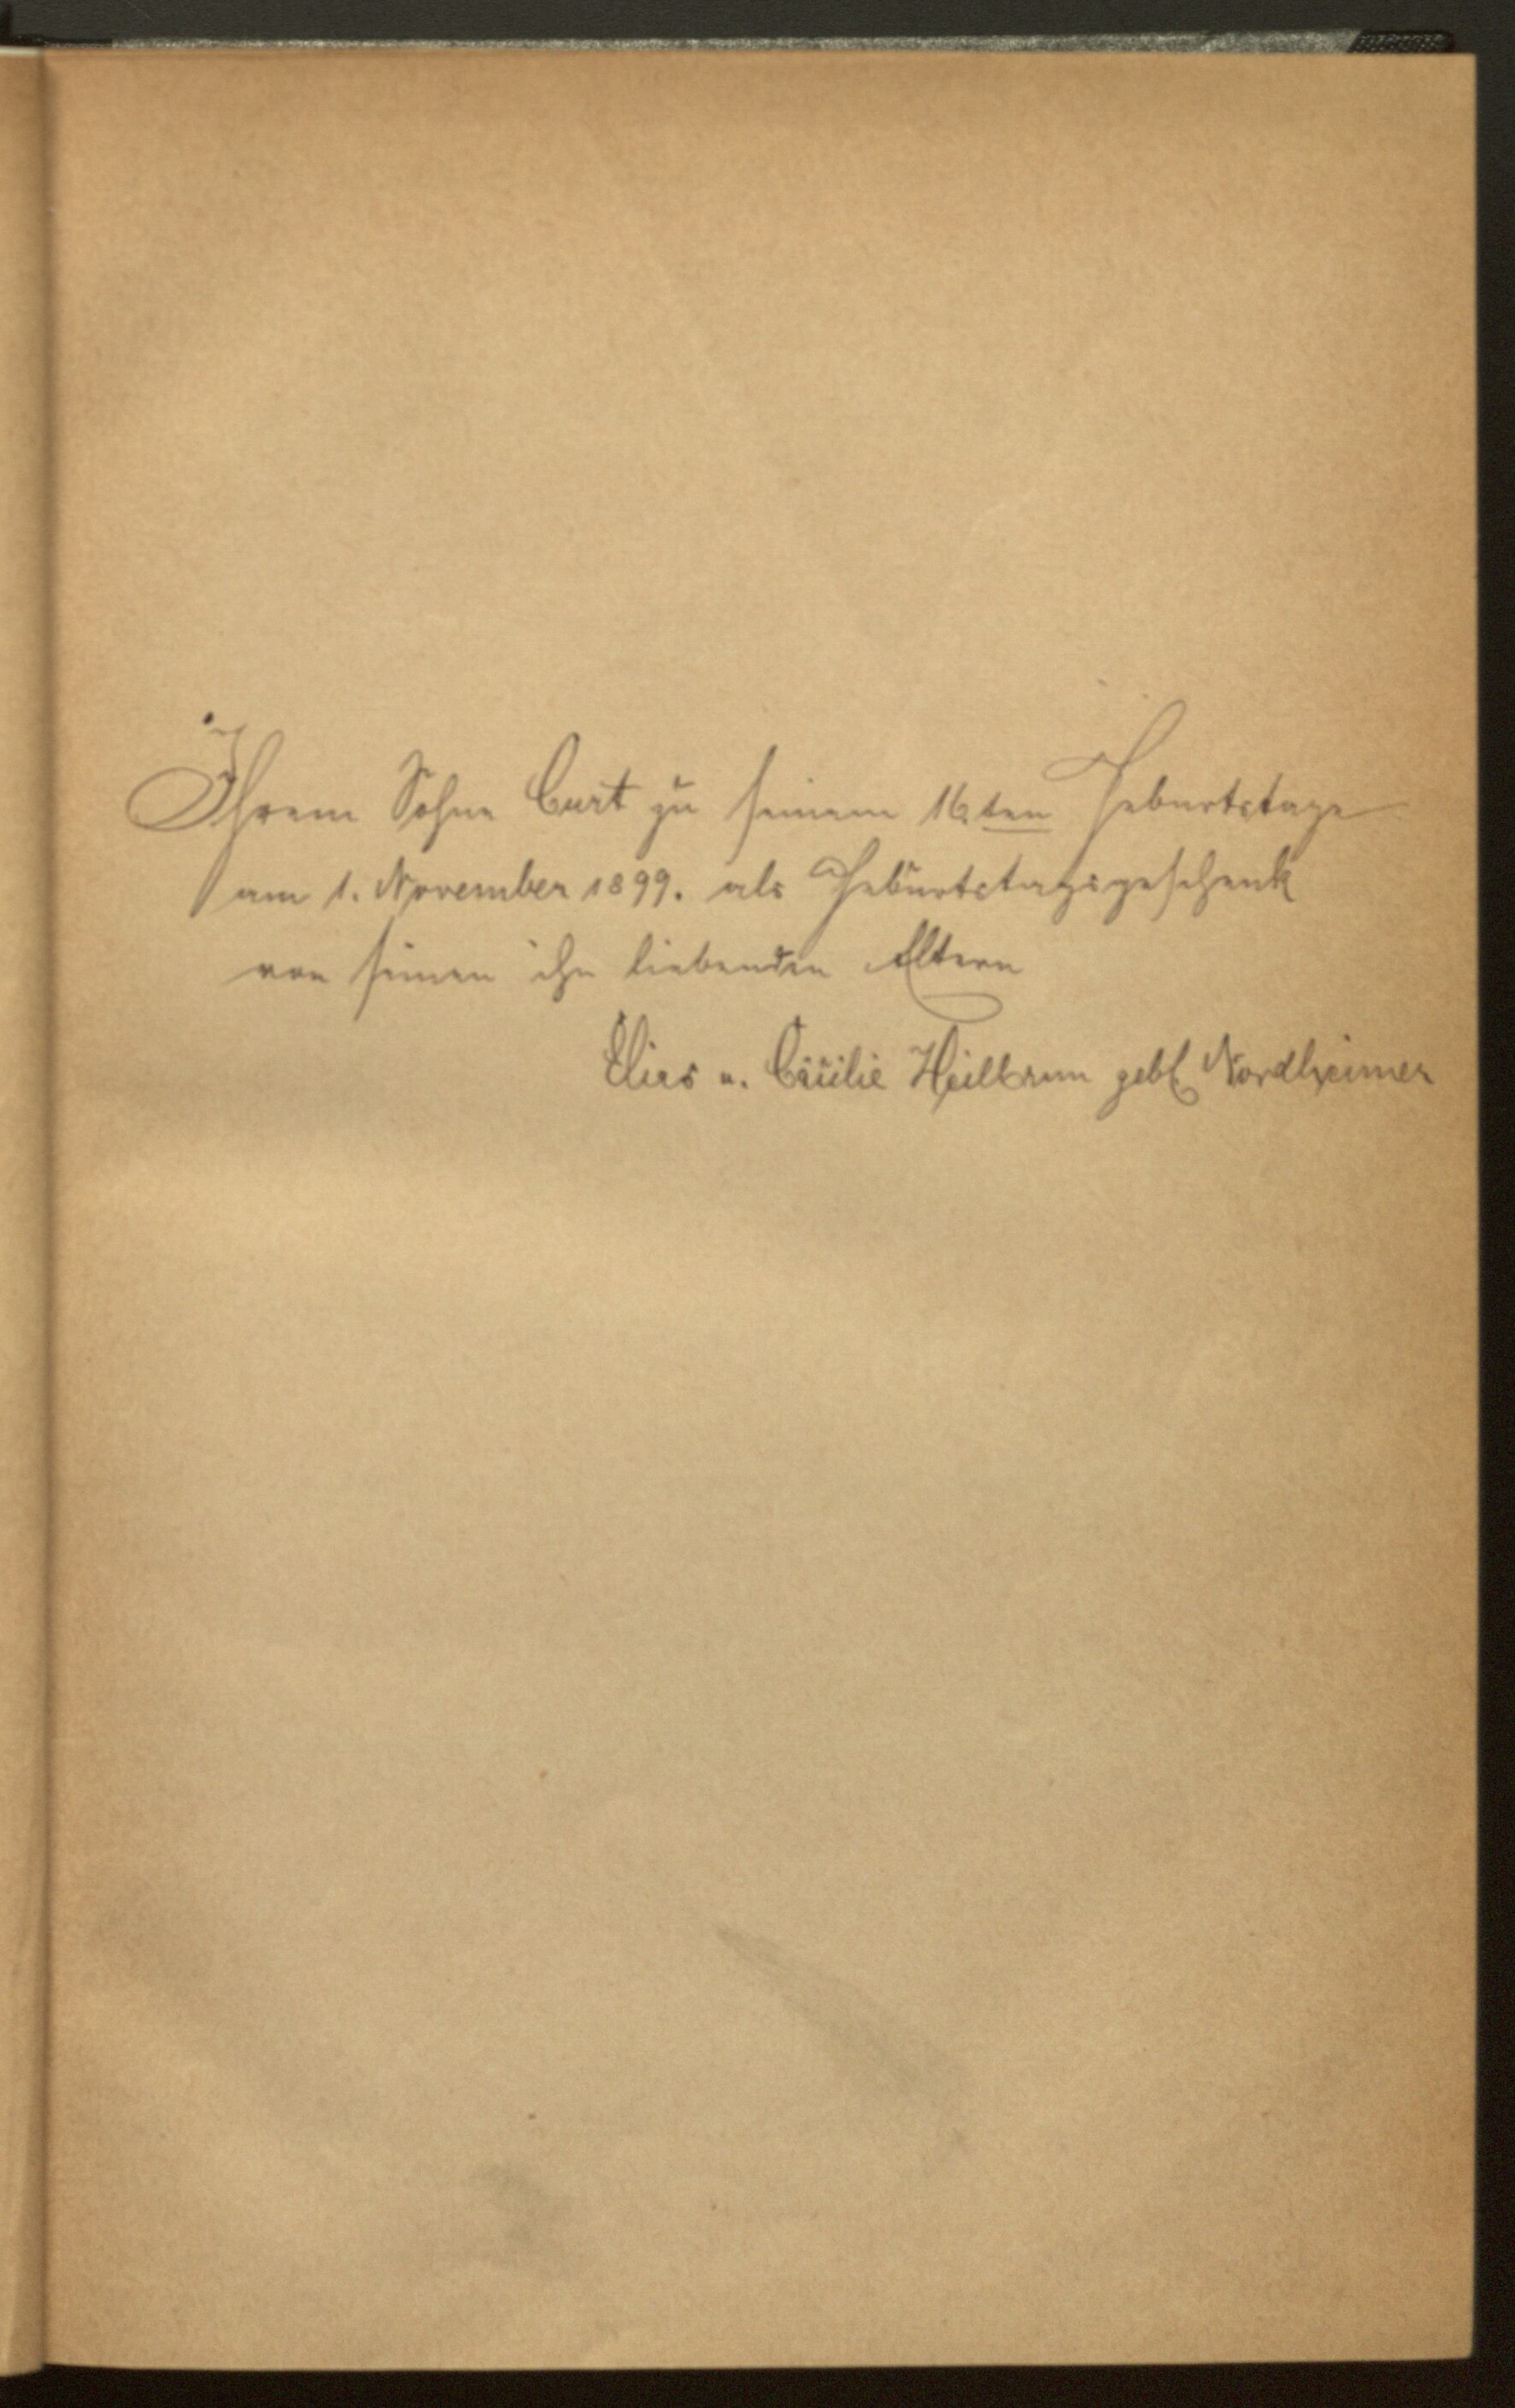 Ihrem Sohne Curt zu seinem 16ten Geburtstage
am 1. November 1899. als Geburtstagsgeschenk
von seinen ihn liebenden Eltern
Elias u. Cäcilie Heilbrun geb. Nordheimer